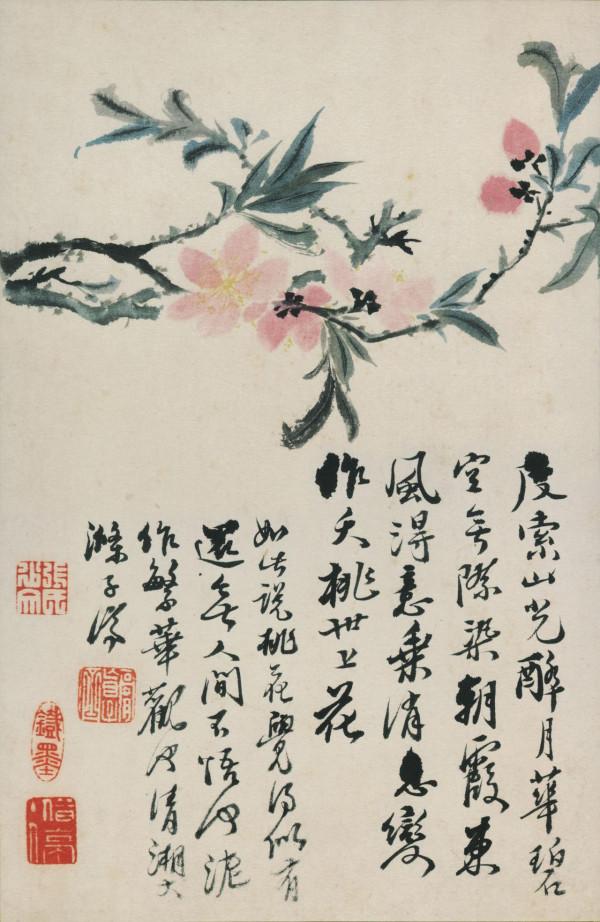 度索山光醉月華碧
空無際染朝霞東
風得意乘消息變
作夭桃世上花
如此說桃花覺得似有
還無人間不悟何泥
作繁華觀也清湘大
滌子濟
鐵墨
借亭